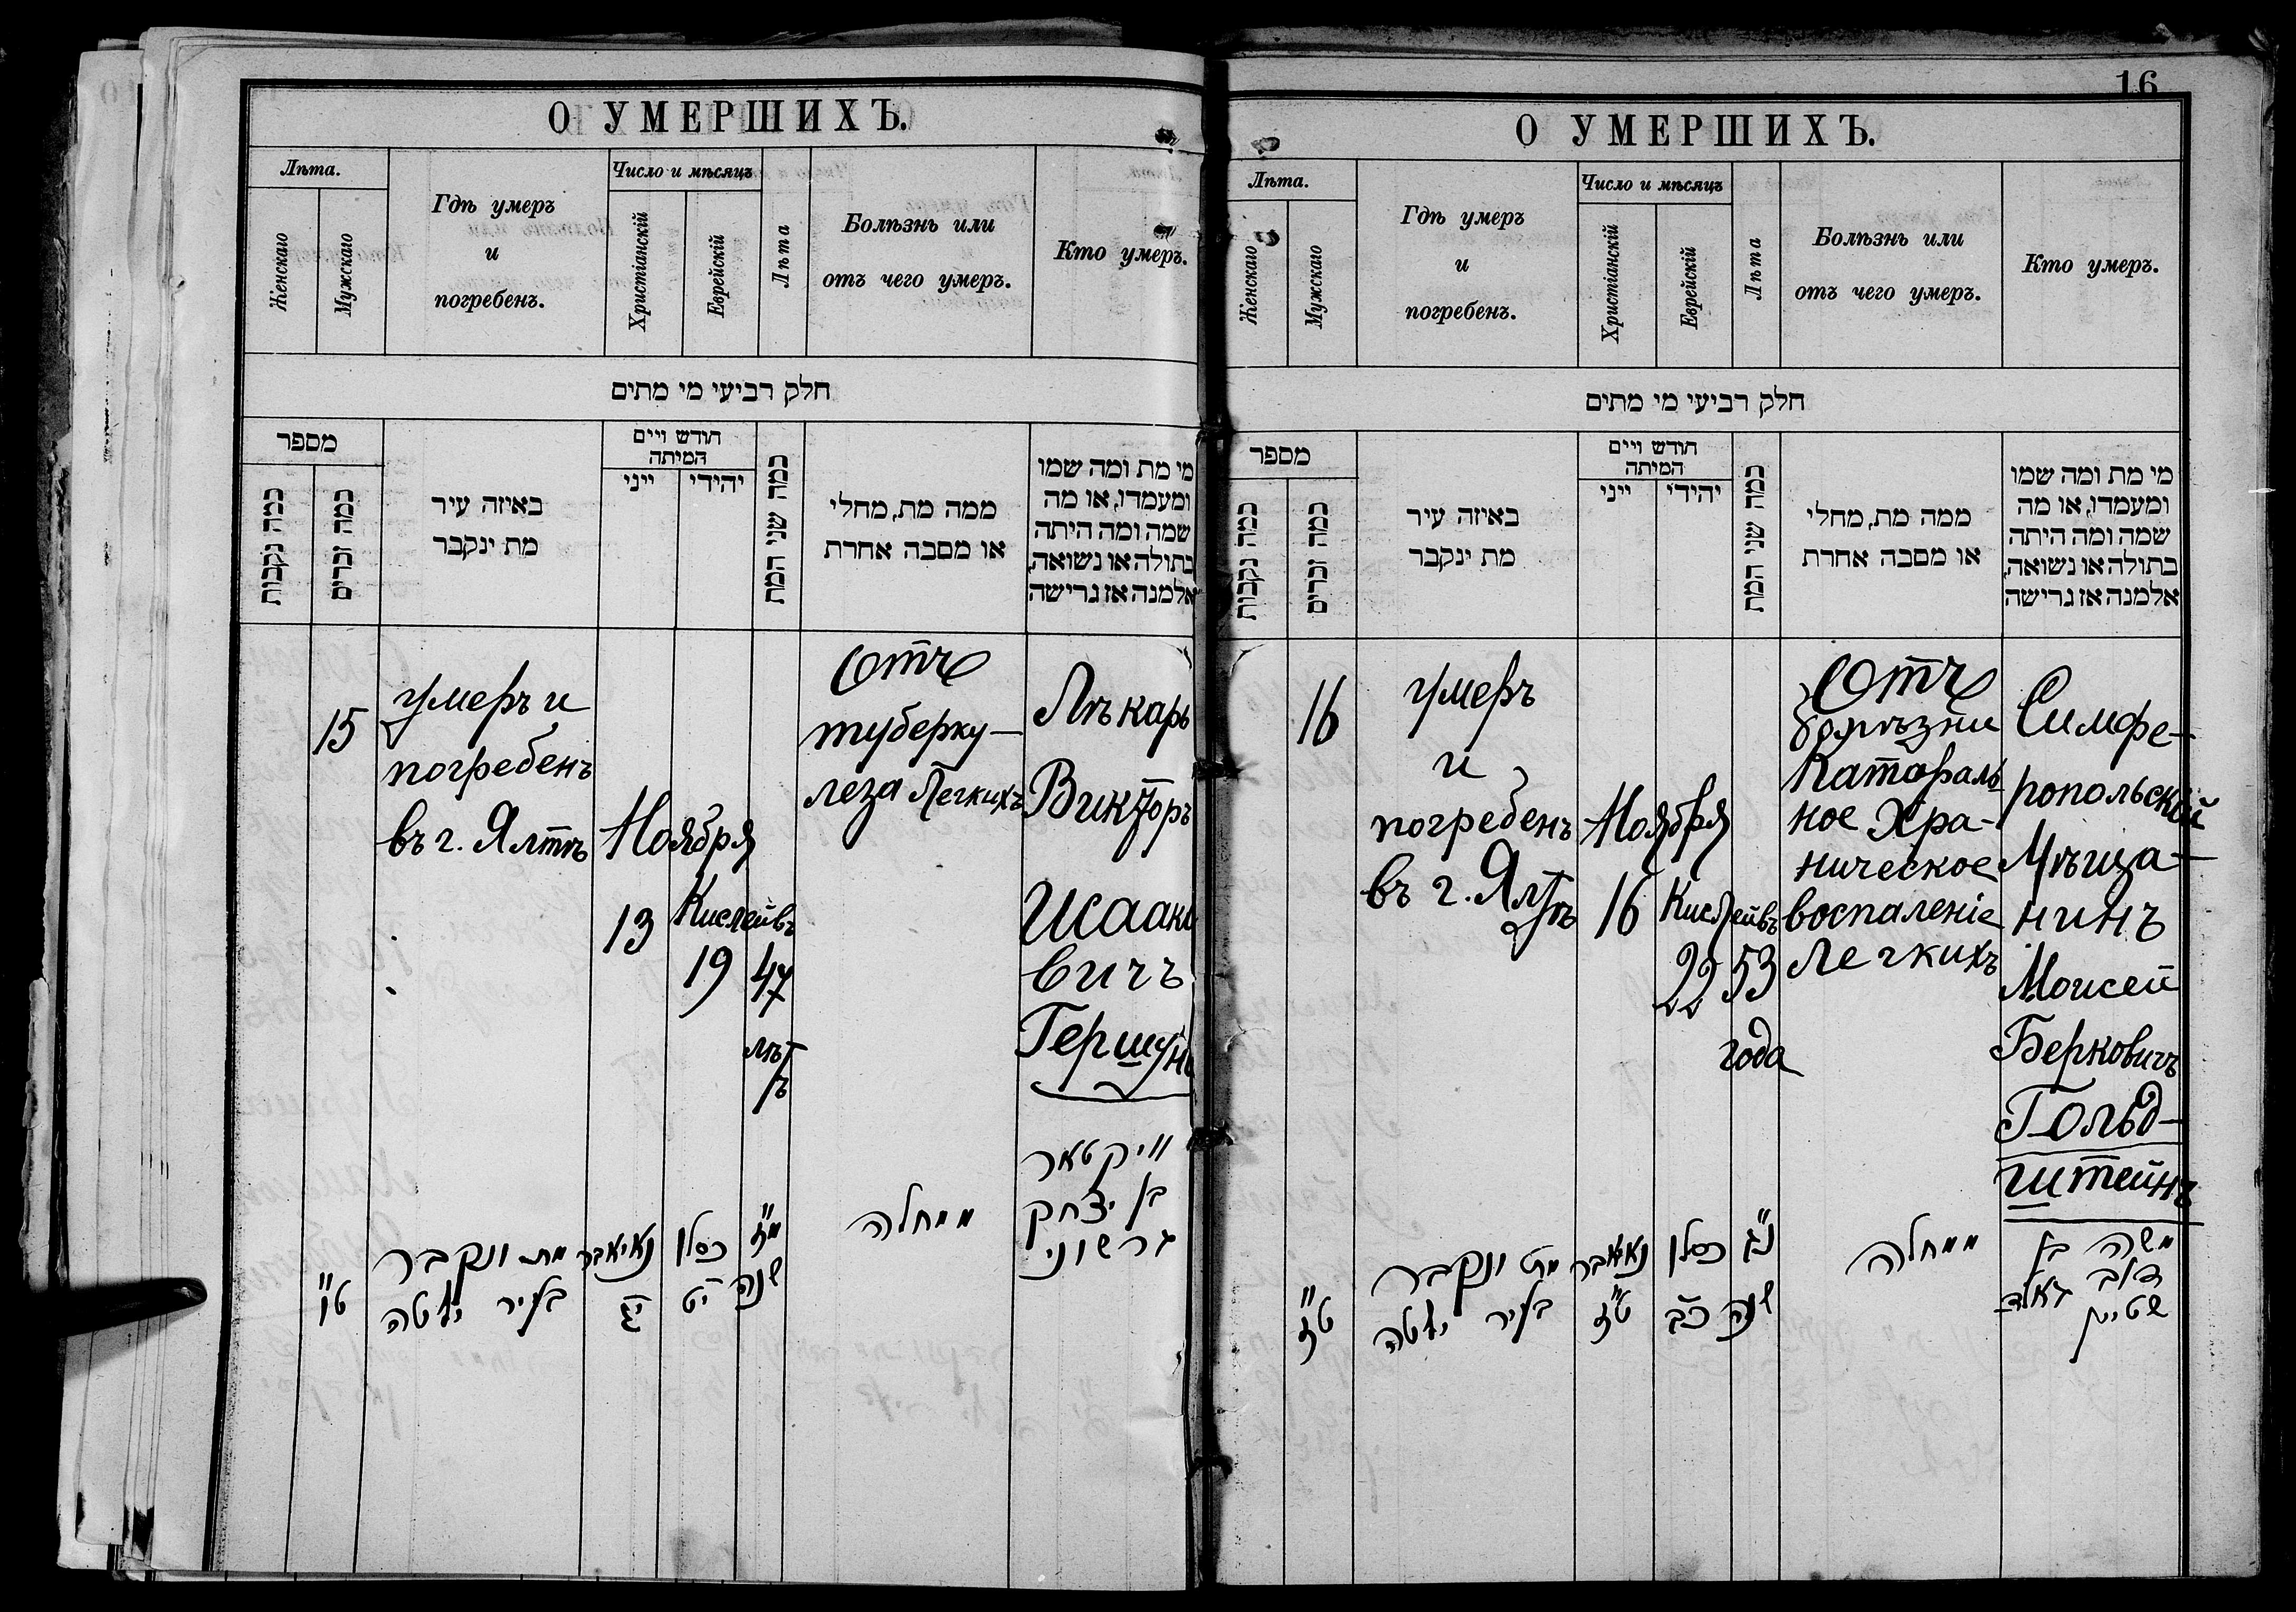 О УМЕРШИХЪ.
Лѣта.
Женскаго
Мужскаго
Гдѣ умеръ
и
погребенъ.
Число и мѣсяцъ
Христіанскій
Еврейскій
Лѣта
Болѣзнь или
отъ чего умеръ.
Кто умеръ.
חלק רביעי מי מתים
מספר
כמה נקבות
כמה זכרים
באיזה עיר
מת ינקבר
חודש ויים
המיתה
ייני
יהידי
כמה שני המת
ממה מת, מחלי
או מסבה אחרת
מי מת ומה שמו
ומעמדו, או מה
שמה ומה היתה
בתולה או נשואה,
אלמנה אז גרישה
15
умеръ и
погребенъ
въ г. Ялтѣ
Ноября
13
Кислейвъ
19
47
лѣт
ъ
Отъ
туберку-
леза Легкихъ
Лѣкарь
Викторъ
Исаако
вичъ
Гершуни
ט"ו
מת ונקבר
בעיר יאלטה
נאיאבר
יג
כסלו
יט
מ"ז
שנה
ממחלה
וויקטאר
בן יצחק
גרשוני
16
О УМЕРШИХЪ.
Лѣта.
Женскаго
Мужскаго
Гдѣ умеръ
и
погребенъ.
Число и мѣсяцъ
Христіанскій
Еврейскій
Лѣта
Болѣзнь или
отъ чего умеръ.
Кто умеръ.
חלק רביעי מי מתים
מספר
כמה נקבות
כמה זכרים
באיזה עיר
מת ינקבר
חודש ויים
המיתה
ייני
יהידי
כמה שני המת
ממה מת, מחלי
או מסבה אחרת
מי מת ומה שמו
ומעמדו, או מה
שמה ומה היתה
בתולה או נשואה,
אלמנה אז גרישה
16
умеръ
и
погребенъ
въ г. Ялтѣ
Ноября
16
Кислейвъ
22
53
года
Отъ
болѣзни
Катараль
ное Хра-
ническое
воспаленіе
Легкихъ
Симфе-
ропольскій
Мѣща-
нинъ
Моисей
Берковичъ
Гольд-
штейнъ
ט"ז
מת ונקבר
בעיר יאלטה
נאיאבר
ט"ז
כסלו
כב
נ"ג
שנה
ממחלה
משה בן
דוב גאלד
שטיין